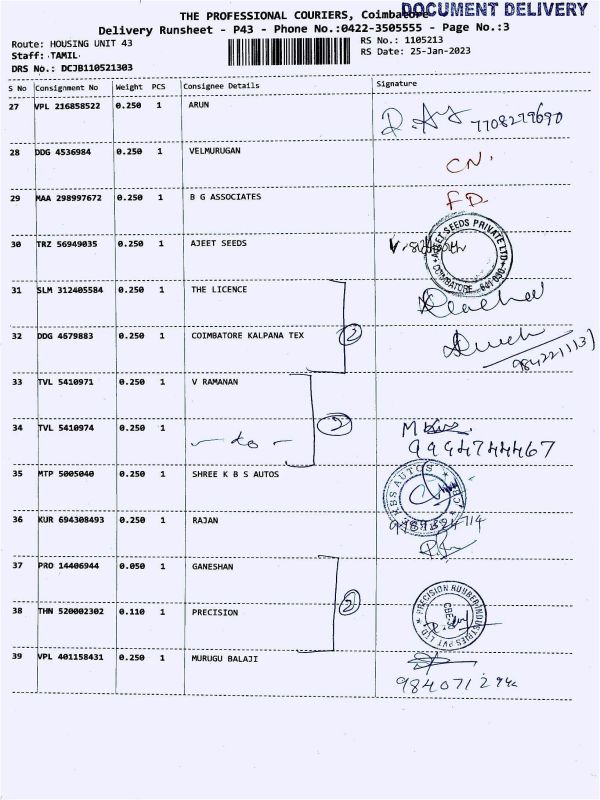 DOCUMENT DELIVERY
THE PROFESSIONAL COURIERS, Coimbatore
Delivery Runsheet - P43 - Phone No.:0422-3505555 - Page No.:3
Route: HOUSING UNIT 43 RS No.: 1105213
Staff: TAMIL RS Date: 25-Jan-2023
DRS No.: DCJB110521303
S No Consignment No Weight PCS Consignee Details Signature
27 VPL 216858522 0.250 1 ARUN 7708279690
28 DDG 4536984 0.250 1 VELMURUGAN CN.
29 MAA 298997672 0.250 1 B G ASSOCIATES FD
30 TRZ 56949035 0.250 1 AJEET SEEDS AJEET SEEDS PRIVATE LTD COIMBATORE
31 SLM 312405584 0.250 1 THE LICENCE
32 DDG 4679883 0.250 1 COIMBATORE KALPANA TEX 2
33 TVL 5410971 0.250 1 V RAMANAN
34 TVL 5410974 0.250 1 - do - 2 9994744467
35 MTP 5005040 0.250 1 SHREE K B S AUTOS KBS AUTOS
36 KUR 694308493 0.250 1 RAJAN
37 PRO 14406944 0.050 1 GANESHAN
38 THN 520002302 0.110 1 PRECISION 2 PRECISION RUBBER INDUSTRIES PVT LTD
39 VPL 401158431 0.250 1 MURUGU BALAJI